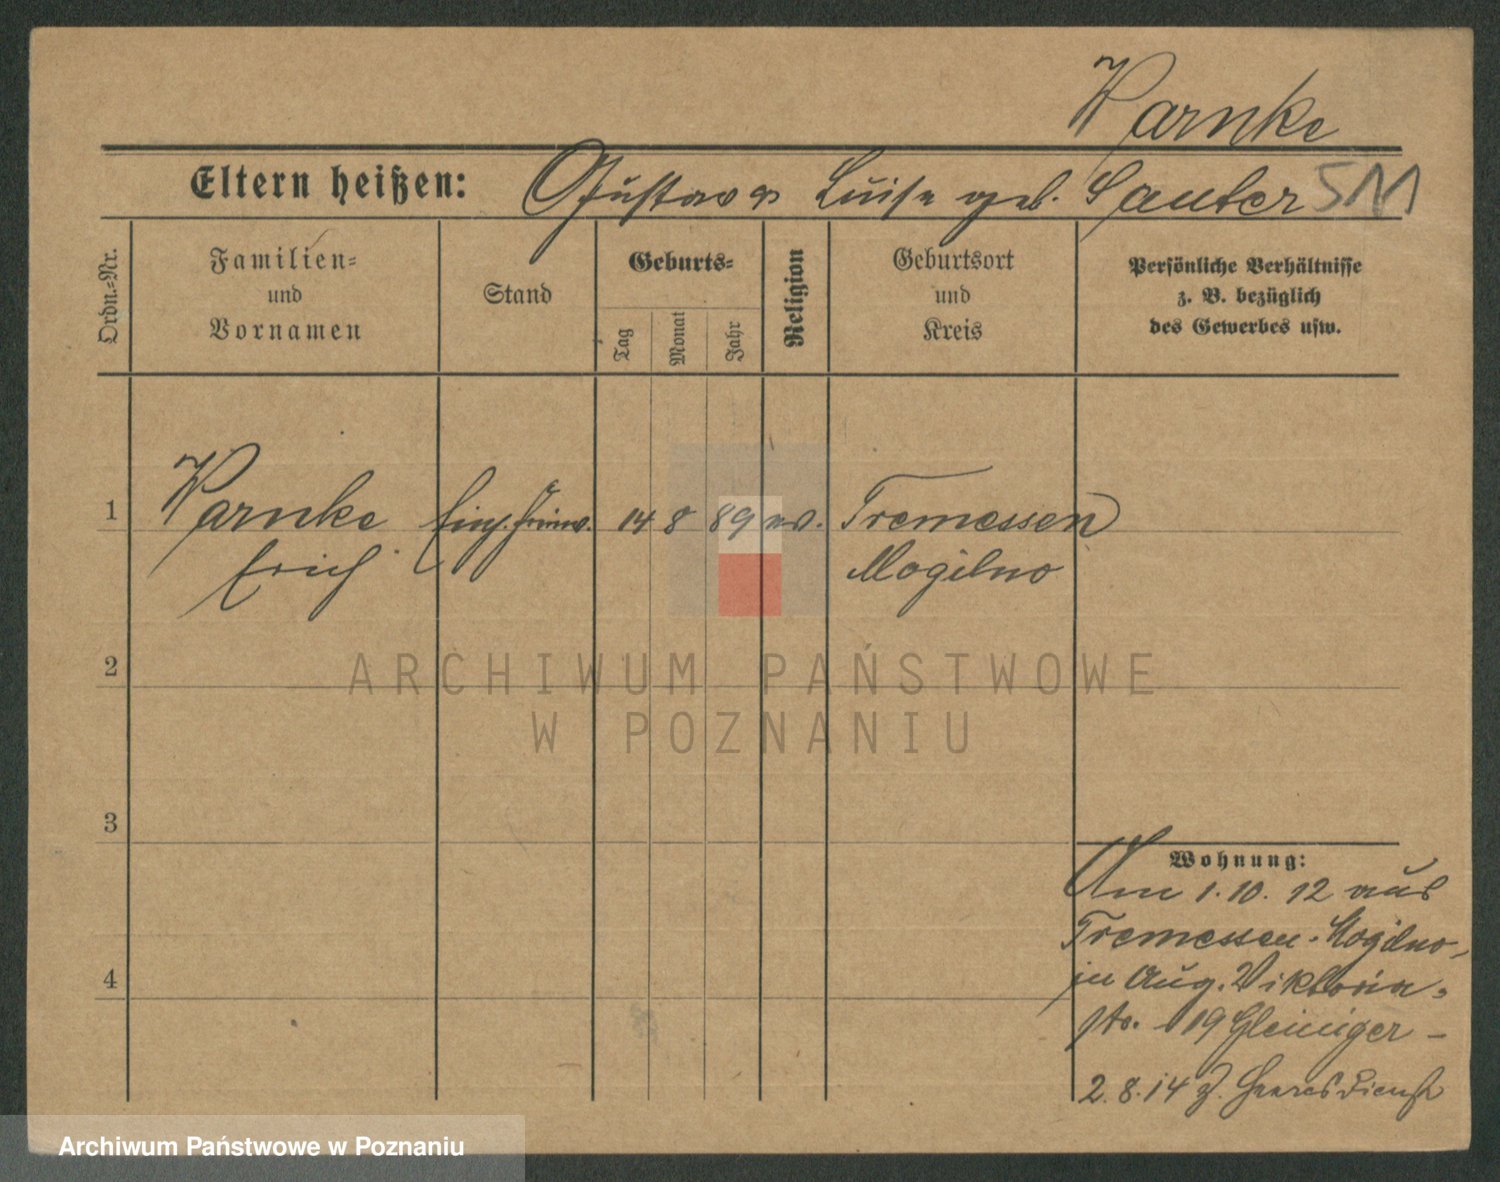 Warnke
Eltern heißen: Gustav u Luise geb. Sauter 511
Ordn.-Nr.
Familien-
und
Vornamen
Stand
Geburts-
Tag
Monat
Jahr
Religion
Geburtsort
und
Kreis
Persönliche Verhältnisse
z. B. bezüglich
des Gewerbes usw.
1 Warnke Einj. Freiw. 14 8 89 ev. Tremessen
Erich Mogilno
2
ARCHIWUM PAŃSTWOWE
W POZNANIU
3
4
Wohnung:
Am 1. 10. 12 aus
Tremessen-Mogilno,
in Aug. Viktoria-
str. 19 Gleiniger -
2. 8. 14 z. Heeresdienst
Archiwum Państwowe w Poznaniu